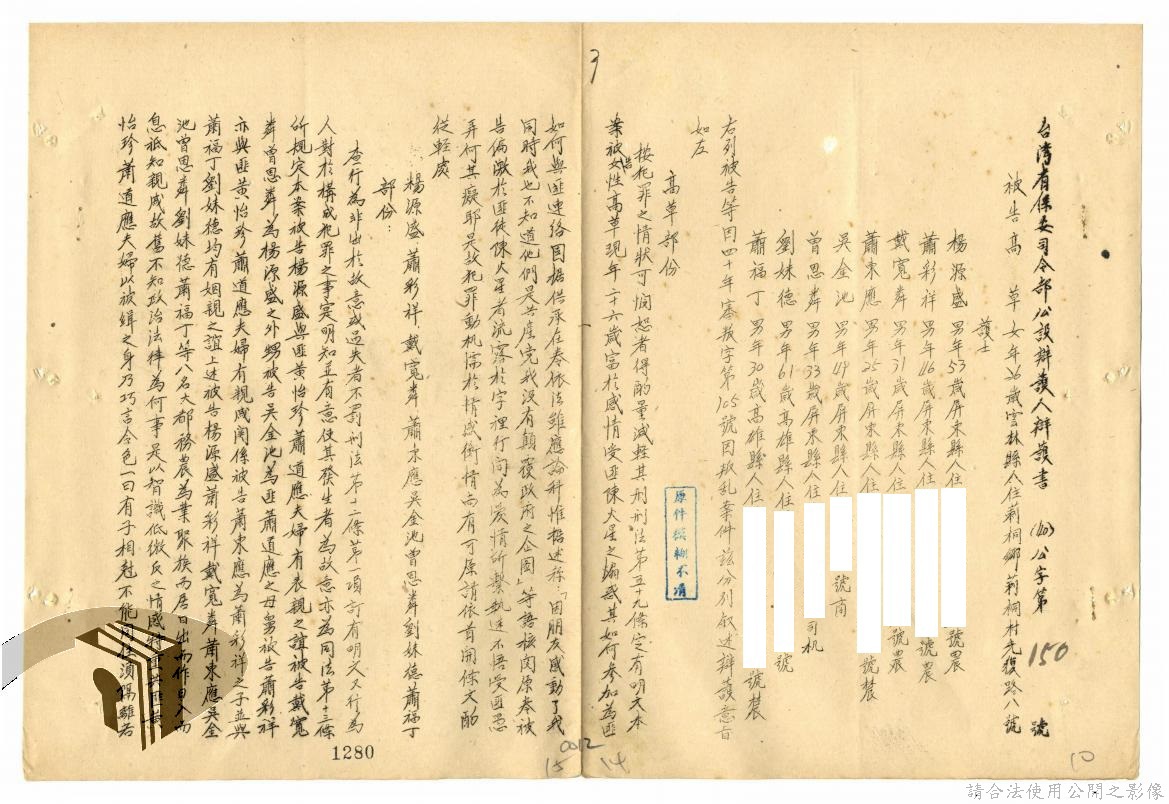 台湾省保安司令部公設辯護人辯護書 (40)公字第150號
被告高 草 女年26歲雲林縣人住莿桐鄉莿桐村光復路八號
護士
楊源盛 男年53歲屏東縣人住 號農
蕭彩祥 男年46歲屏東縣人住 號農
戴寬粦 男年31歲屏東縣人住 號農
蕭東應 男年25歲屏東縣人住 號農
吳金池 男年49歲屏東縣人住 號商
曾思粦 男年33歲屏東縣人住 司机
劉妹德 男年61歲高雄縣人住 號
蕭福丁 男年30歲高雄縣人住 號農
右列被告等因四十年審叛字第105號因叛乱案件茲分別叙述辯護意旨
如左
高草部份
按犯罪之情狀可憫恕者得酌量減輕其刑刑法第五十九條定有明文本
案被告女性高草現年二十六歲富於感情受匪陳火星之煽惑其如何參加為匪
如何與匪連絡固据供承在卷依法雖應論科惟据述称:「因朋友感動了我
同時我也不知道他們是共產党我沒有顛覆政府之企圖」等語核閱原卷被
告偏激於匪徒陳火星者流露於字裡行间為愛情所繫執迷不悟受匪愚
弄何其癡耶是故犯罪動机濡於情感衡情尚有可原請依首開條文酌
從輕處
楊源盛 蕭彩祥 戴寬粦 蕭東應 吳金池 曾思粦 劉妹德 蕭福丁
部份:
查行為非出於故意或過失者不罰刑法第十二條第一項訂有明文又行為
人對於構成犯罪之事實明知並有意使其發生者為故意亦為同法第十三條
所規定本案被告楊源盛與匪黃怡珍蕭道應夫婦有表親之誼被告戴寬
粦曾思粦為楊源盛之外甥被告吳金池為匪蕭道應之母舅被告蕭彩祥
亦與匪黃怡珍蕭道應夫婦有親戚関係被告蕭東應為蕭彩祥之子並與
蕭福丁劉妹德均有姻親之誼上述被告楊源盛蕭彩祥戴寬粦蕭東應吳金
池曾思粦劉妹德蕭福丁等八名大都務農為業聚族而居日出而作日入而
息祇知親戚故舊不知政治法律為何事是以智識低微反之情感特 匪黃
怡珍蕭道應夫婦以被緝之身乃巧言令色一曰有子相尅不能同住須隔離若
原件模糊不清
1280
0012
15
14
10
請合法使用公開之影像